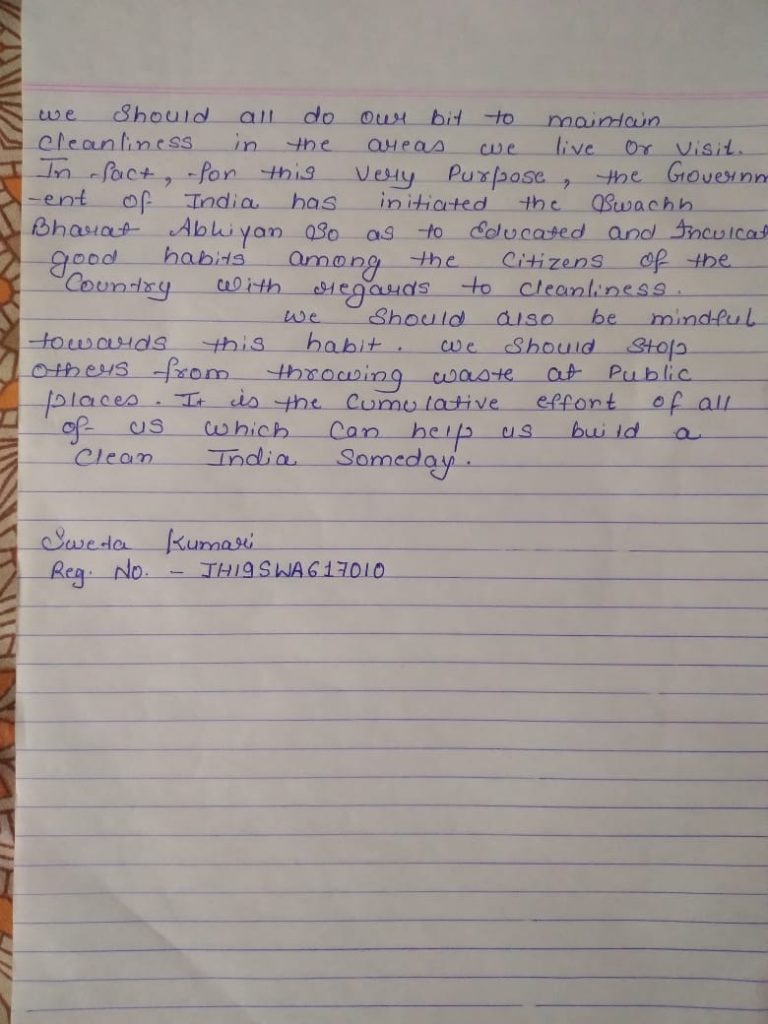 we should all do our bit to maintain
cleanliness in the areas we live or visit.
In fact, for this very Purpose, the Governm
-ent of India has initiated the Swachh
Bharat Abhiyan so as to Educated and Inculcat
good habits among the Citizens of the
Country with regards to cleanliness.
we should also be mindful
towards this habit. we should stop
others from throwing waste at Public
places. It is the Cumulative effort of all
of us which can help us build a
Clean India Someday.
Sweta Kumari
Reg. No. - JH19SWA617010